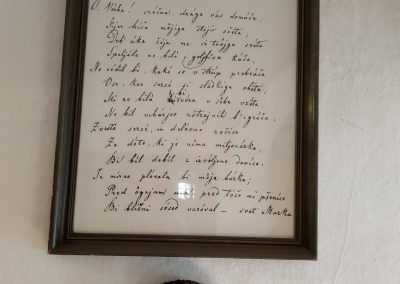 O, Vrba! srečna, draga vas domača,
Kjer hiša mojega stoji očeta;
Deb' uka žeja me iz tvojga svéta
Speljala ne bila, goljfiva kača!
Ne védil bi, kakó se v strup prebrača
Vse, kar sercé si sladkiga obéta;
Mi ne bila bi vera v sébe vzéta,
Ne bil viharjov nótrajnih b' igrača.
Zvestó sercé in delavno ročico
Za doto, ki je nima miljonarka,
Bi bil dobil z izvoljeno devico.
In mirno plavala bi moja barka,
Pred ognjam dom, pred tóčo mi pšenico
Bi bližnji sósed varoval — svet Marka